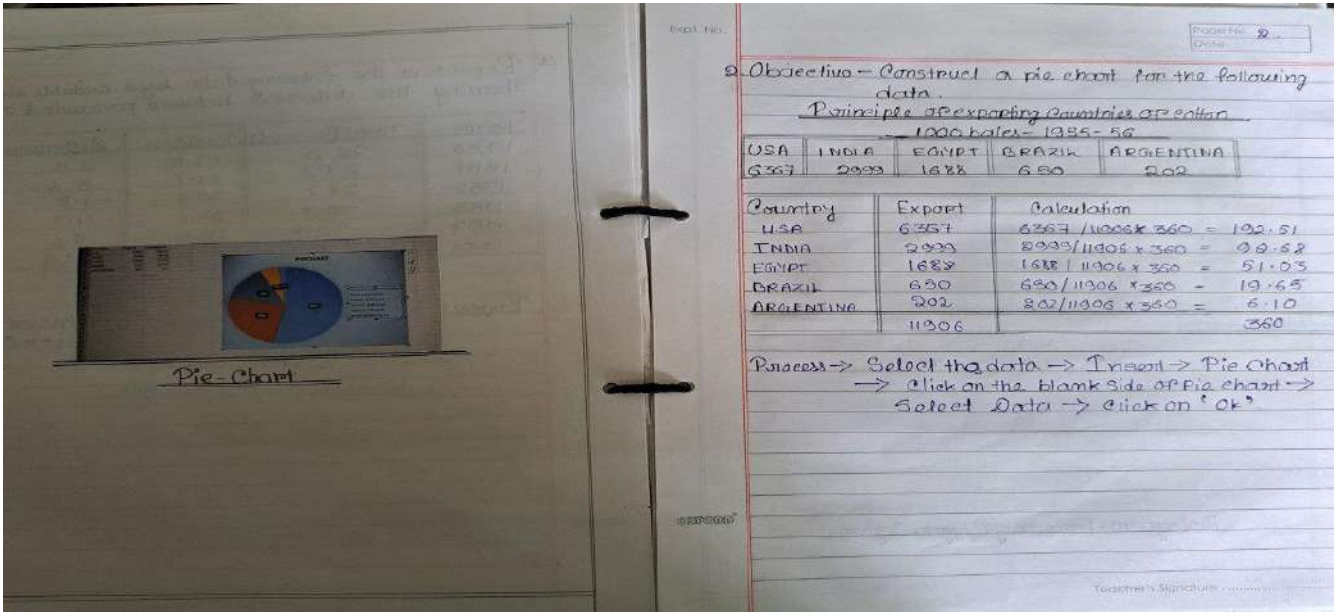 Pie-Chart
Expt. No.
Page No. 2.
Date
2. Objective - Construct a pie chart for the following
data.
Principle of exporting Countries of cotton
1000 bales - 1955-56
USA INDIA EGYPT BRAZIL ARGENTINA
6367 2999 1688 650 202
Country Export Calculation
USA 6367 6367/11906 x 360 = 192.51
INDIA 2999 2999/11906 x 360 = 90.68
EGYPT 1688 1688/11906 x 360 = 51.03
BRAZIL 650 650/11906 x 360 = 19.65
ARGENTINA 202 202/11906 x 360 = 6.10
11906 360
Process -> Select the data -> Insert -> Pie Chart
-> Click on the blank side of Pie chart ->
Select Data -> Click on 'Ok'.
Teacher's Signature